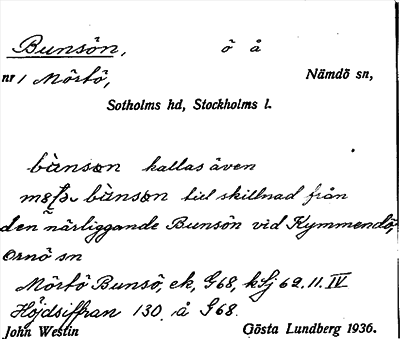 Bunsön, ö å
nr 1 Mörtö, Nämdö sn,
Sotholms hd, Stockholms l.
bùnsøn kallas även
bùnsøn till skillnad från
den närliggande Bunsön vid Kymmendö,
Ornö sn
Mörtö Bunsö, ek. G68, kSj 62. 11. IV
Höjdsiffran 130. å G68.
John Westin Gösta Lundberg 1936.